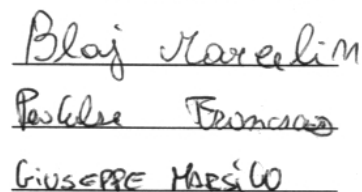 Blaj Marcelin
Francesco
GIUSEPPE MARSICO